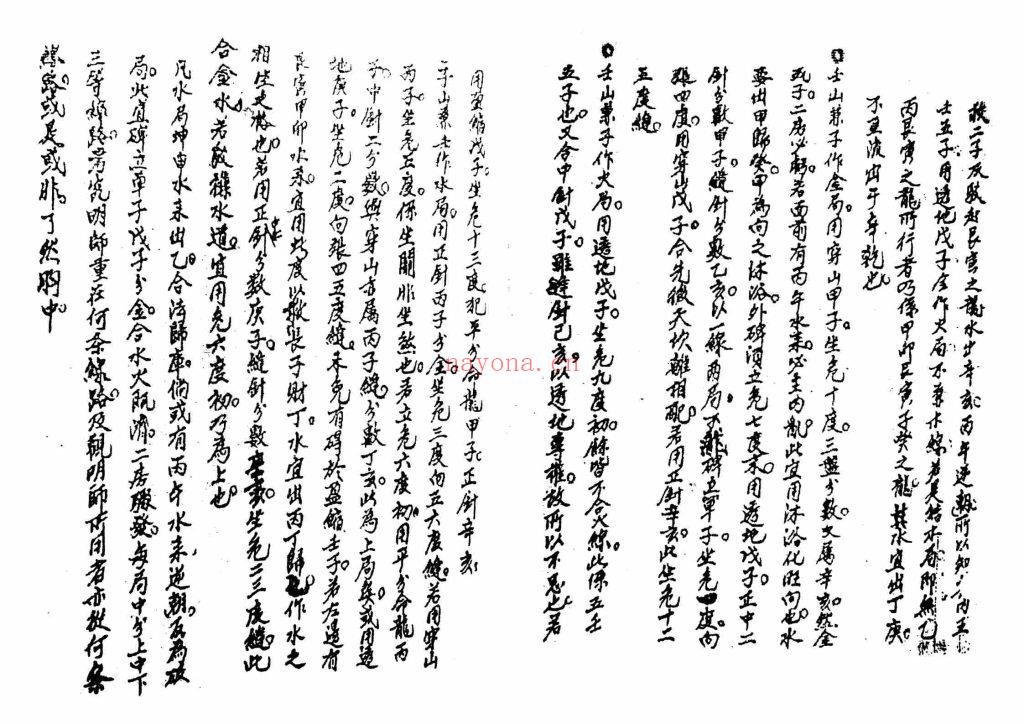 救二子反敗起艮寅之龍水出辛亥丙午逆朝所以知六丙五
壬五子用透地戊子合作火局不兼水線若是結水局那無乙
丙艮寅之龍所行者乃係甲卯艮寅子癸之龍其水宜出丁庚
不丑流出于辛乾也
壬山兼子作金局用穿山甲子坐危十度三盤分數又屬辛亥然金
瓦子二房必弱若面前有丙午水來必主內亂此宜用沐浴化旺向也水
要出甲歸癸甲為向之沐浴外碑須立危七度末用透地戊子正中二
針分數甲子縫針分數乙亥以一線兩局碑立單子坐危度向
張四度用穿山戊子合先後天坎離相配若用正針辛亥此坐危十二
五度線
壬山兼子作火局用透地戊子坐危九度初餘皆不合火線此係五壬
五子也又合中針戊子雖縫針己亥以透地專權故所以不忌也若
用盈縮戊子坐危十三度犯平分命龍甲子正針辛亥
子山兼壬作水局用正針丙子分金坐危三度向五六度線若用穿山
丙子坐危五度係生關非坐煞也若立危六度初用平分命龍丙
子中針二分數與穿山皆屬丙子縫分數丁亥此為上局矣或用透
地庚子坐危二度向張四五度縫未免有碍於盈縮壬子若左邊有
艮寅甲卯水來宜用此度以救長子財丁水宜出丙丁歸作水之
相生是格也若用正針分數庚子縫針分數辛亥坐危二三度縫此
合金水若發操水道宜用危六度初乃為上也
凡水局坤申水來出乙合法歸庫倘或有丙午水來逆朝反為敗
局此宜碑立單子戊子分金合水火既濟二房驟發每局中分上中下
三等線路需究明師重在何条線路及觀明師所用者亦從何条
線路或是或非了然胸中
nayona.cn